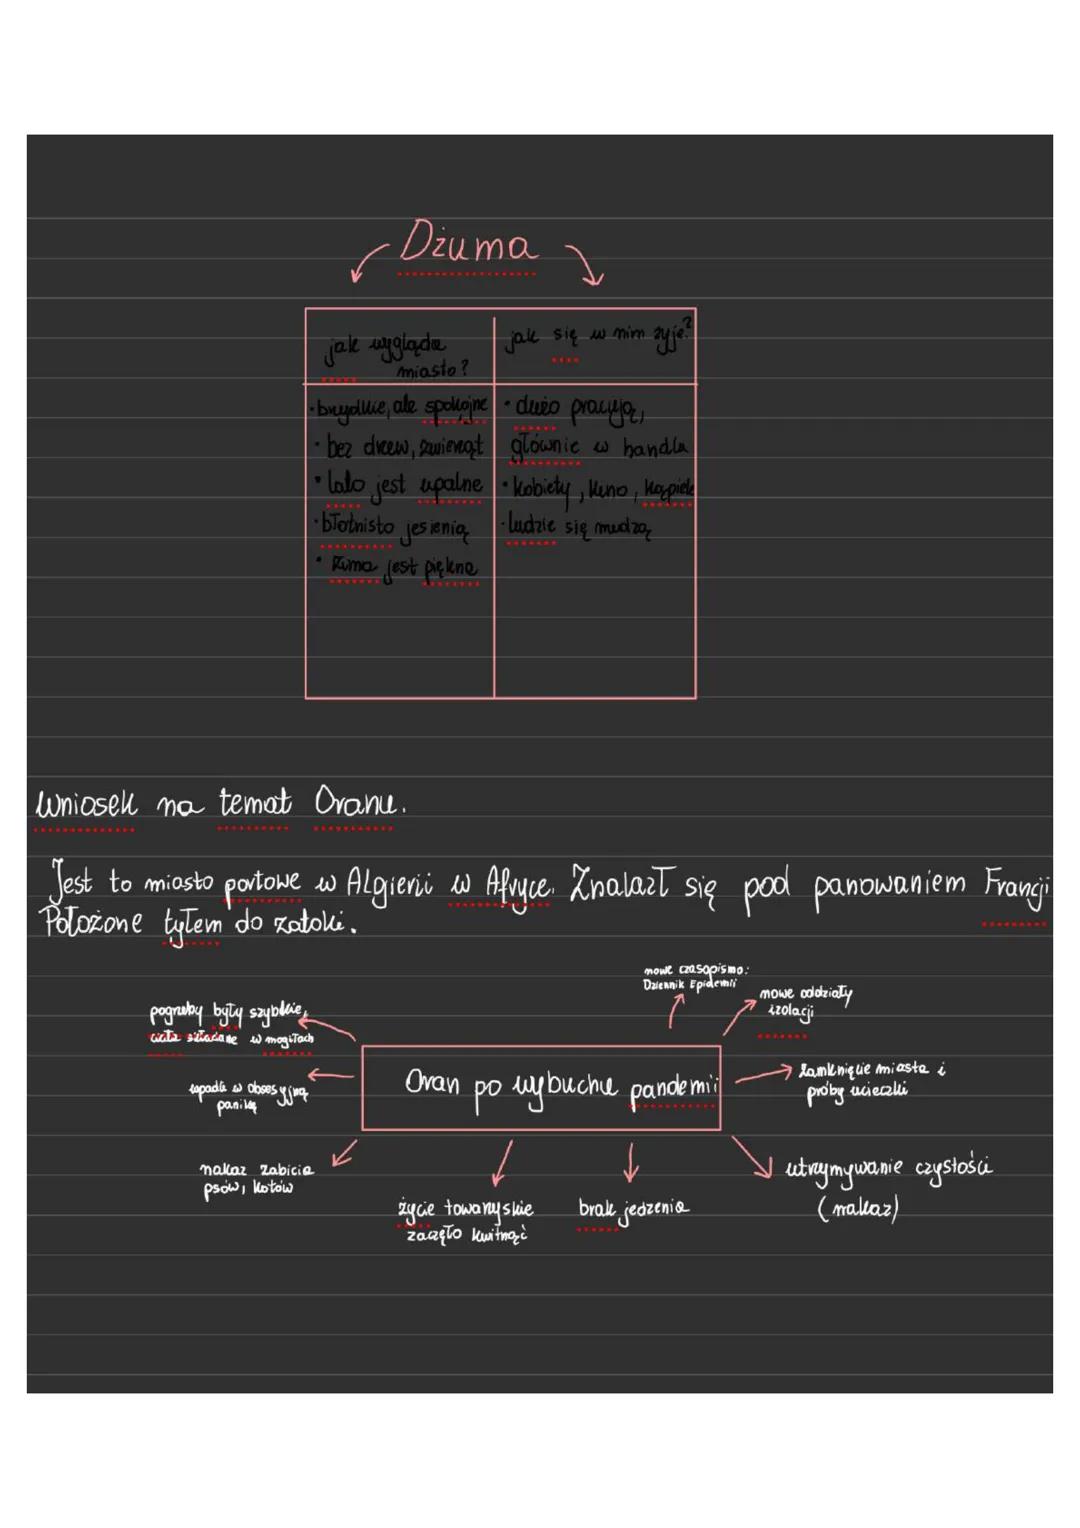 Dżuma
jak wygląda
miasto?
jak się w nim żyje?
• brzydkie, ale spokojne
• bez drzew, zwierząt
• lato jest upalne
• błotnisto jesienią
• zima jest piękna
• dużo pracują,
głównie w handlu
• kobiety, kino, kąpiele
• ludzie się nudzą
Wniosek na temat Oranu.
Jest to miasto portowe w Algierii w Afryce. Znalazł się pod panowaniem Francji
Położone tyłem do zatoki.
nowe czasopismo:
Dziennik Epidemii
nowe oddziały
izolacji
pogrzeby były szybkie,
ciała składane w mogiłach
Oran po wybuchu pandemii
zamknięcie miasta i
próby ucieczki
wpadła w obsesyjną
panikę
nakaz zabicia
psów, kotów
życie towarzyskie
zaczęło kwitnąć
brak jedzenia
utrzymywanie czystości
(nakaz)